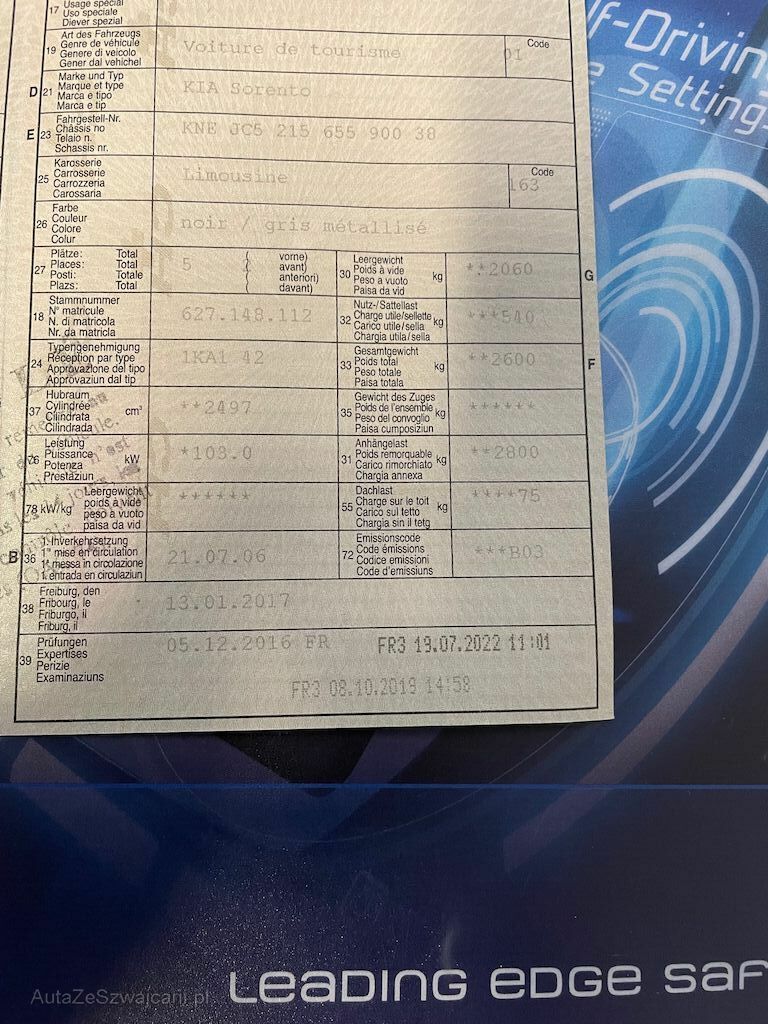 17 Usage spécial
Uso speciale
Diever spezial
19 Art des Fahrzeugs
Genre de véhicule
Genere di veicolo
Gener dal vehichel
Voiture de tourisme
Code
01
D 21 Marke und Typ
Marque et type
Marca e tipo
Marca e tip
KIA Sorento
E 23 Fahrgestell-Nr.
Châssis no
Telaio n.
Schassis nr.
KNE JC5 215 655 900 38
25 Karosserie
Carrosserie
Carrozzeria
Carossaria
Limousine
Code
163
26 Farbe
Couleur
Colore
Colur
noir / gris métallisé
27 Plätze: Total
Places: Total
Posti: Totale
Plazs: Total
5 ( vorne)
( avant)
( anteriori)
( davant)
30 Leergewicht
Poids à vide kg
Peso a vuoto
Paisa da vid
**2060
G
18 Stammnummer
N° matricule
N. di matricola
Nr. da matricla
627.148.112
32 Nutz-/Sattellast
Charge utile/sellette kg
Carico utile/sella
Chargia utila/sella
***540
24 Typengenehmigung
Réception par type
Approvazione del tipo
Approvaziun dal tip
1KA1 42
33 Gesamtgewicht
Poids total kg
Peso totale
Paisa totala
**2600
F
37 Hubraum
Cylindrée cm³
Cilindrata
Cilindrada
**2497
35 Gewicht des Zuges
Poids de l'ensemble kg
Peso del convoglio
Paisa cumposiziun
******
76 Leistung
Puissance kW
Potenza
Prestaziun
*103.0
31 Anhängelast
Poids remorquable kg
Carico rimorchiato
Chargia annexa
**2800
78 kW/kg Leergewicht
poids à vide
peso a vuoto
paisa da vid
******
55 Dachlast
Charge sur le toit kg
Carico sul tetto
Chargia sin il tetg
****75
B 36 1. Inverkehrsetzung
1re mise en circulation
1a messa in circolazione
1. entrada en circulaziun
21.07.06
72 Emissionscode
Code émissions
Codice emissioni
Code d'emissiuns
***B03
38 Freiburg, den
Fribourg, le
Friburgo, il
Friburg, il
13.01.2017
39 Prüfungen
Expertises
Perizie
Examinaziuns
05.12.2016 FR FR3 19.07.2022 11:01
FR3 08.10.2019 14:58
lf-Driving
e Setting
LEADING EDGE SAF
AutaZeSzwajcarii.pl